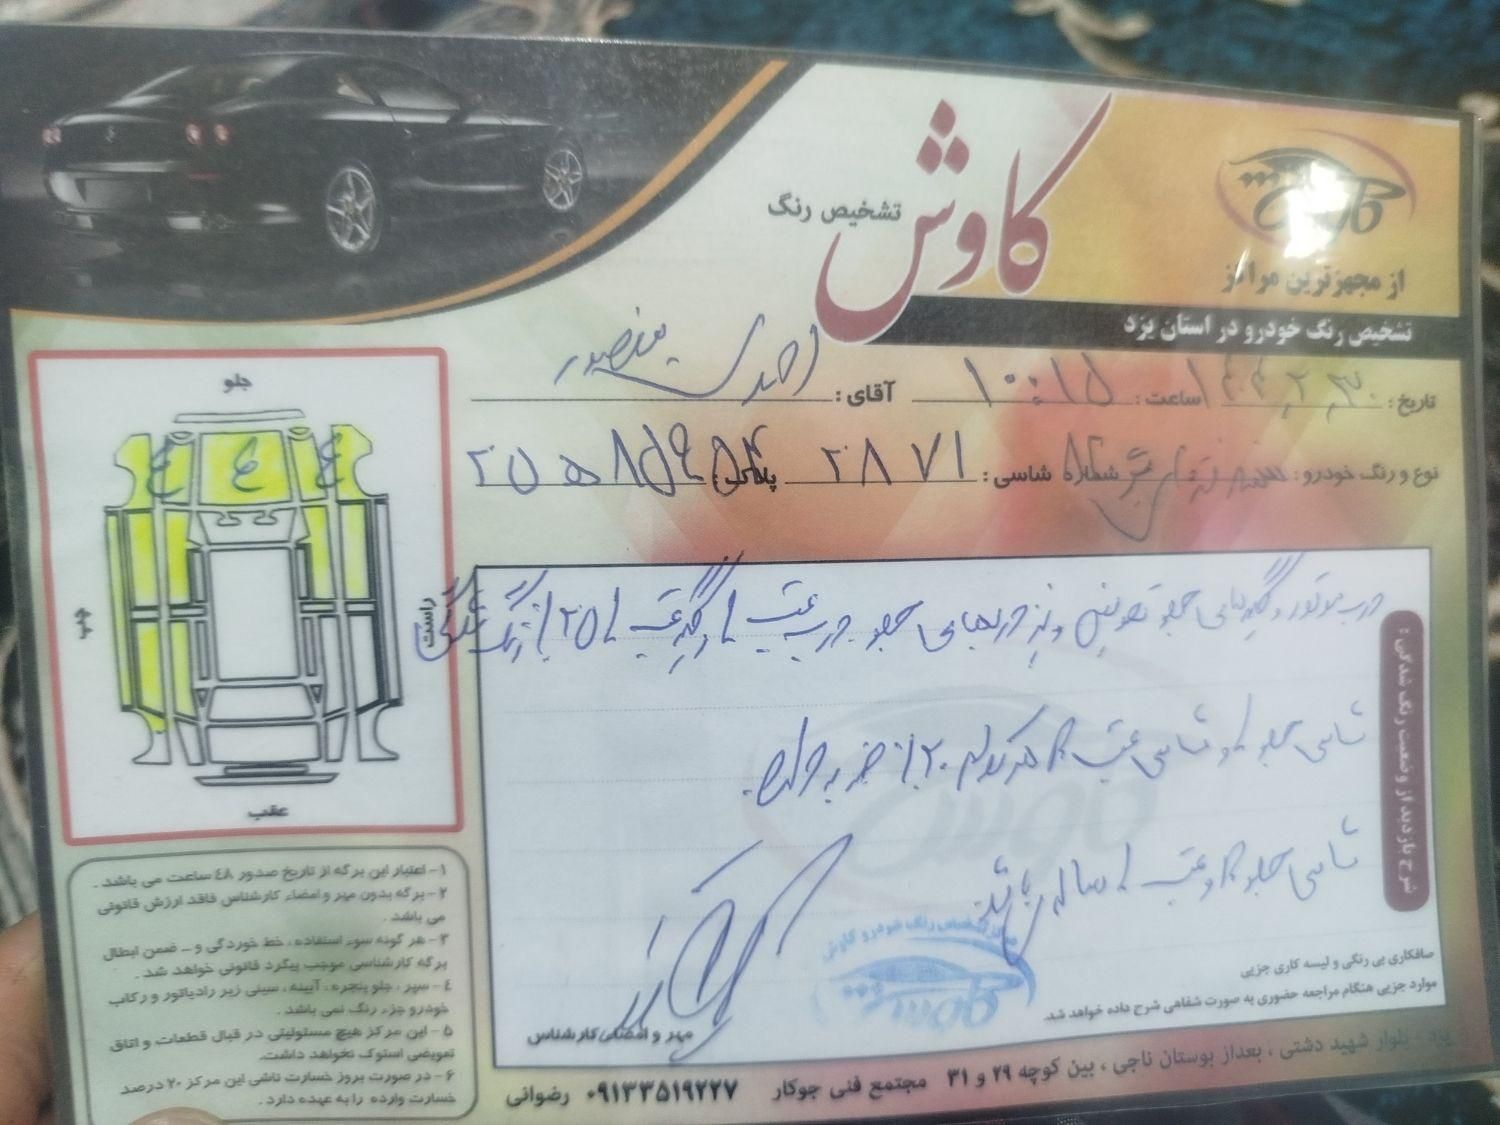 کاوش
تشخیص رنگ
از مجهزترین مراکز
تشخیص رنگ خودرو در استان یزد
تاریخ: ساعت: ۱۰:۱۵ آقای: احمدی منصور
نوع و رنگ خودرو: شماره شاسی: ۲۸۷۱ پلاک:
جلو
چپ
راست
عقب
شرح بازدید از وضعیت رنگ شدگی:
درب موتور و گلگیرهای جلو تعویض و درهای جلو درب عقب گلگیر عقب رنگ شدگی
شاسی جلو شاسی عقب
شاسی جلو عقب سالم
مرکز تشخیص رنگ خودرو کاوش
صافکاری بی رنگی و لیسه کاری جزیی
موارد جزیی هنگام مراجعه حضوری به صورت شفاهی شرح داده خواهد شد.
مهر و امضای کارشناس
۱- اعتبار این برگه از تاریخ صدور ٤۸ ساعت می باشد.
۲- برگه بدون مهر و امضاء کارشناس فاقد ارزش قانونی
می باشد.
۳- هر گونه سوء استفاده، خط خوردگی و... ضمن ابطال
برگه کارشناسی موجب پیگرد قانونی خواهد شد.
٤- سپر، جلو پنجره، آیینه، سینی زیر رادیاتور و رکاب
خودرو جزء رنگ نمی باشد.
۵- این مرکز هیچ مسئولیتی در قبال قطعات و اتاق
تعویضی استوک نخواهد داشت.
۶- در صورت بروز خسارت ناشی این مرکز ۲۰ درصد
خسارت وارده را به عهده دارد.
یزد - بلوار شهید دشتی، بعداز بوستان ناجی، بین کوچه ۲۹ و ۳۱ مجتمع فنی جوکار ۰۹۱۳۳۵۱۹۲۲۷ رضوانی